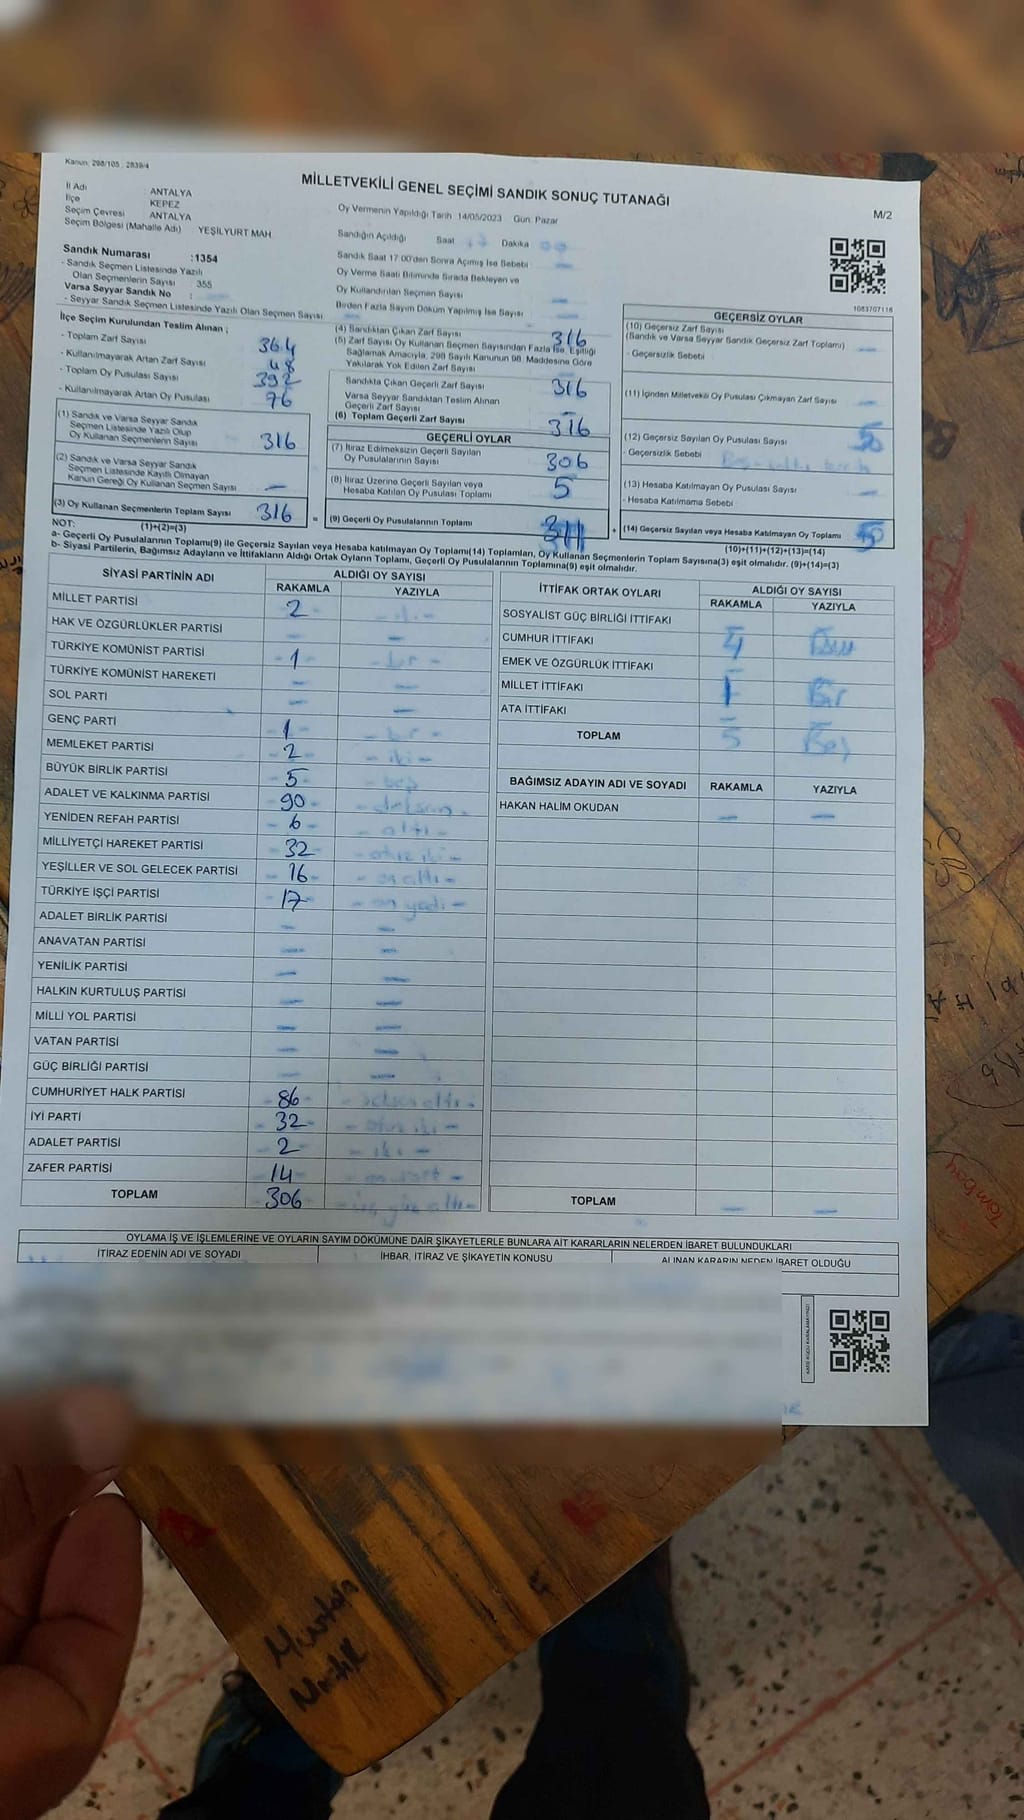 Kanun: 298/105 . 2839/4
MİLLETVEKİLİ GENEL SEÇİMİ SANDIK SONUÇ TUTANAĞI
M/2
İl Adı : ANTALYA
İlçe : KEPEZ
Seçim Çevresi : ANTALYA
Seçim Bölgesi (Mahalle Adı) : YEŞİLYURT MAH
Oy Vermenin Yapıldığı Tarih 14/05/2023 Gün: Pazar
Sandığın Açıldığı Saat 17 Dakika 00
Sandık Saat 17 00'den Sonra Açılmış İse Sebebi
Oy Verme Saati Bitiminde Sırada Bekleyen ve
Oy Kullandırılan Seçmen Sayısı
Birden Fazla Sayım Döküm Yapılmış İse Sayısı
Sandık Numarası :1354
- Sandık Seçmen Listesinde Yazılı
Olan Seçmenlerin Sayısı 355
Varsa Seyyar Sandık No :
- Seyyar Sandık Seçmen Listesinde Yazılı Olan Seçmen Sayısı
1083707116
İlçe Seçim Kurulundan Teslim Alınan ;
- Toplam Zarf Sayısı 364
- Kullanılmayarak Artan Zarf Sayısı 48
- Toplam Oy Pusulası Sayısı 392
- Kullanılmayarak Artan Oy Pusulası 76
(1) Sandık ve Varsa Seyyar Sandık
Seçmen Listesinde Yazılı Olup
Oy Kullanan Seçmenlerin Sayısı 316
(2) Sandık ve Varsa Seyyar Sandık
Seçmen Listesinde Kayıtlı Olmayan
Kanun Gereği Oy Kullanan Seçmen Sayısı —
(3) Oy Kullanan Seçmenlerin Toplam Sayısı 316
(4) Sandıktan Çıkan Zarf Sayısı 316
(5) Zarf Sayısı Oy Kullanan Seçmen Sayısından Fazla İse, Eşitliği
Sağlamak Amacıyla, 298 Sayılı Kanunun 98. Maddesine Göre
Yakılarak Yok Edilen Zarf Sayısı
Sandıkta Çıkan Geçerli Zarf Sayısı 316
Varsa Seyyar Sandıktan Teslim Alınan
Geçerli Zarf Sayısı —
(6) Toplam Geçerli Zarf Sayısı 316
GEÇERLİ OYLAR
(7) İtiraz Edilmeksizin Geçerli Sayılan
Oy Pusulalarının Sayısı 306
(8) İtiraz Üzerine Geçerli Sayılan veya
Hesaba Katılan Oy Pusulası Toplamı 5
= (9) Geçerli Oy Pusulalarının Toplamı 311 +
GEÇERSİZ OYLAR
(10) Geçersiz Zarf Sayısı
(Sandık ve Varsa Seyyar Sandık Geçersiz Zarf Toplamı) —
- Geçersizlik Sebebi
(11) İçinden Milletvekili Oy Pusulası Çıkmayan Zarf Sayısı —
(12) Geçersiz Sayılan Oy Pusulası Sayısı
- Geçersizlik Sebebi
(13) Hesaba Katılmayan Oy Pusulası Sayısı —
- Hesaba Katılmama Sebebi
(14) Geçersiz Sayılan veya Hesaba Katılmayan Oy Toplamı
NOT: (1)+(2)=(3)
(10)+(11)+(12)+(13)=(14)
a- Geçerli Oy Pusulasının Toplamı(9) ile Geçersiz Sayılan veya Hesaba katılmayan Oy Toplamı(14) Toplamları, Oy Kullanan Seçmenlerin Toplam Sayısına(3) eşit olmalıdır. (9)+(14)=(3)
b- Siyasi Partilerin, Bağımsız Adayların ve İttifakların Aldığı Ortak Oyların Toplamı, Geçerli Oy Pusulalarının Toplamına(9) eşit olmalıdır.
SİYASİ PARTİNİN ADI ALDIĞI OY SAYISI
RAKAMLA YAZIYLA
MİLLET PARTİSİ 2
HAK VE ÖZGÜRLÜKLER PARTİSİ — —
TÜRKİYE KOMÜNİST PARTİSİ - 1 - - bir -
TÜRKİYE KOMÜNİST HAREKETİ — —
SOL PARTİ — —
GENÇ PARTİ - 1 - - bir -
MEMLEKET PARTİSİ - 2 - - iki -
BÜYÜK BİRLİK PARTİSİ - 5 - - beş
ADALET VE KALKINMA PARTİSİ - 90 - - doksan -
YENİDEN REFAH PARTİSİ - 6 - - altı -
MİLLİYETÇİ HAREKET PARTİSİ - 32 - - otuz iki -
YEŞİLLER VE SOL GELECEK PARTİSİ - 16 - - on altı -
TÜRKİYE İŞÇİ PARTİSİ - 17 - - on yedi -
ADALET BİRLİK PARTİSİ — —
ANAVATAN PARTİSİ — —
YENİLİK PARTİSİ — —
HALKIN KURTULUŞ PARTİSİ — —
MİLLİ YOL PARTİSİ — —
VATAN PARTİSİ — —
GÜÇ BİRLİĞİ PARTİSİ — —
CUMHURİYET HALK PARTİSİ - 86 - - seksen altı -
İYİ PARTİ - 32 - - otuz iki -
ADALET PARTİSİ - 2 - - iki -
ZAFER PARTİSİ - 14 - - on dört -
TOPLAM - 306 - - üç yüz altı -
İTTİFAK ORTAK OYLARI ALDIĞI OY SAYISI
RAKAMLA YAZIYLA
SOSYALİST GÜÇ BİRLİĞİ İTTİFAKI
CUMHUR İTTİFAKI 4
EMEK VE ÖZGÜRLÜK İTTİFAKI — —
MİLLET İTTİFAKI 1 Bir
ATA İTTİFAKI — —
TOPLAM 5 Beş
BAĞIMSIZ ADAYIN ADI VE SOYADI RAKAMLA YAZIYLA
HAKAN HALİM OKUDAN — —
TOPLAM — —
OYLAMA İŞ VE İŞLEMLERİNE VE OYLARIN SAYIM DÖKÜMÜNE DAİR ŞİKAYETLERLE BUNLARA AİT KARARLARIN NELERDEN İBARET BULUNDUKLARI
İTİRAZ EDENİN ADI VE SOYADI İHBAR, İTİRAZ VE ŞİKAYETİN KONUSU ALINAN KARARIN NEDEN İBARET OLDUĞU
Tambay
Mustafa